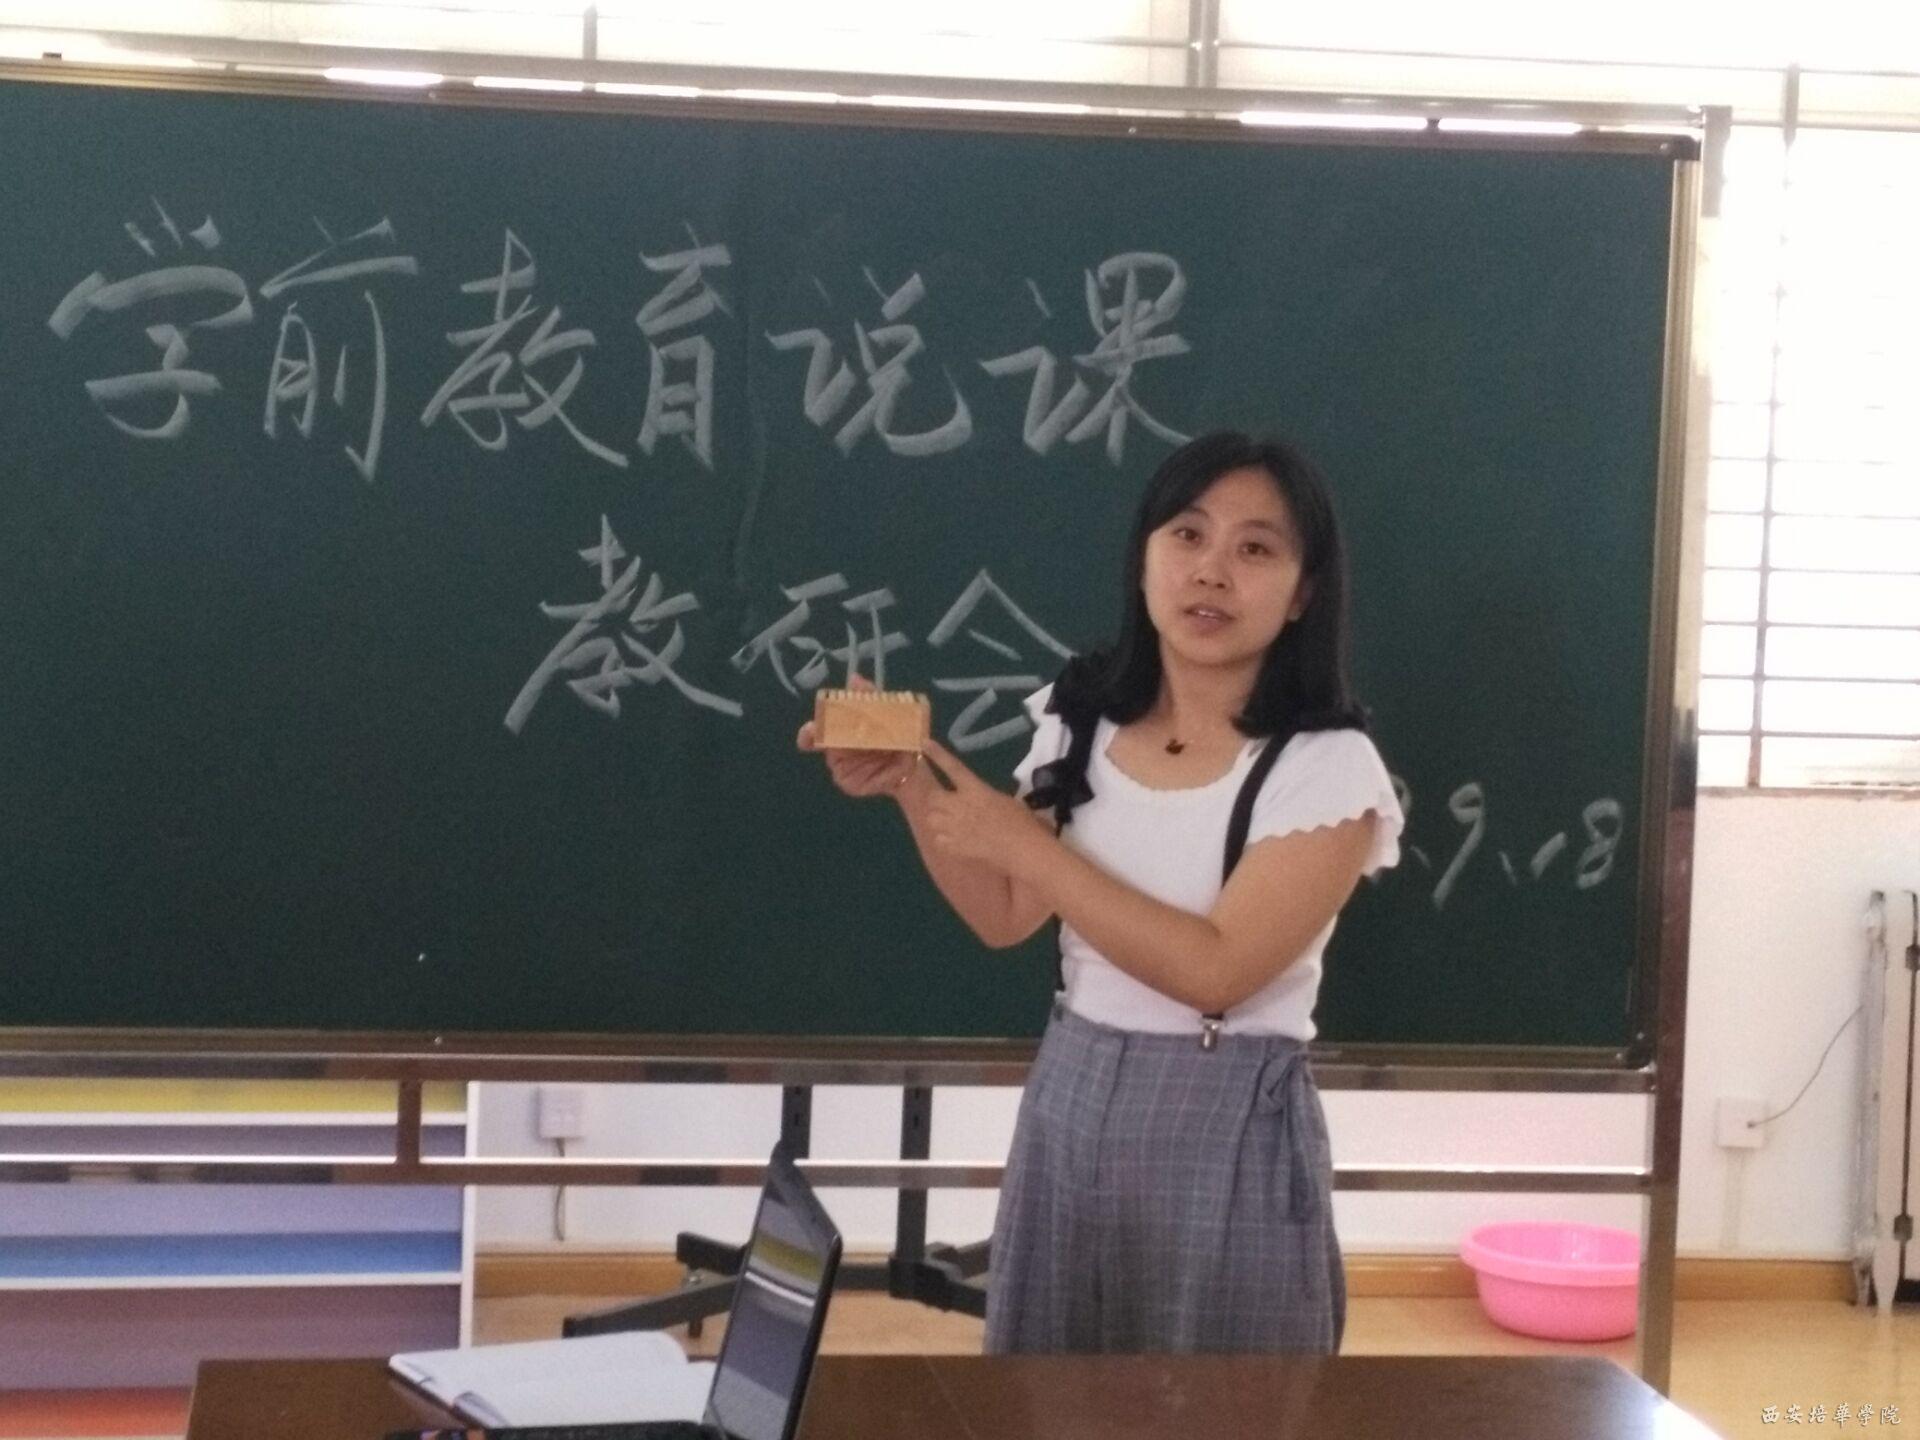 学前教育说课
教研会
.9.18
西安培華學院